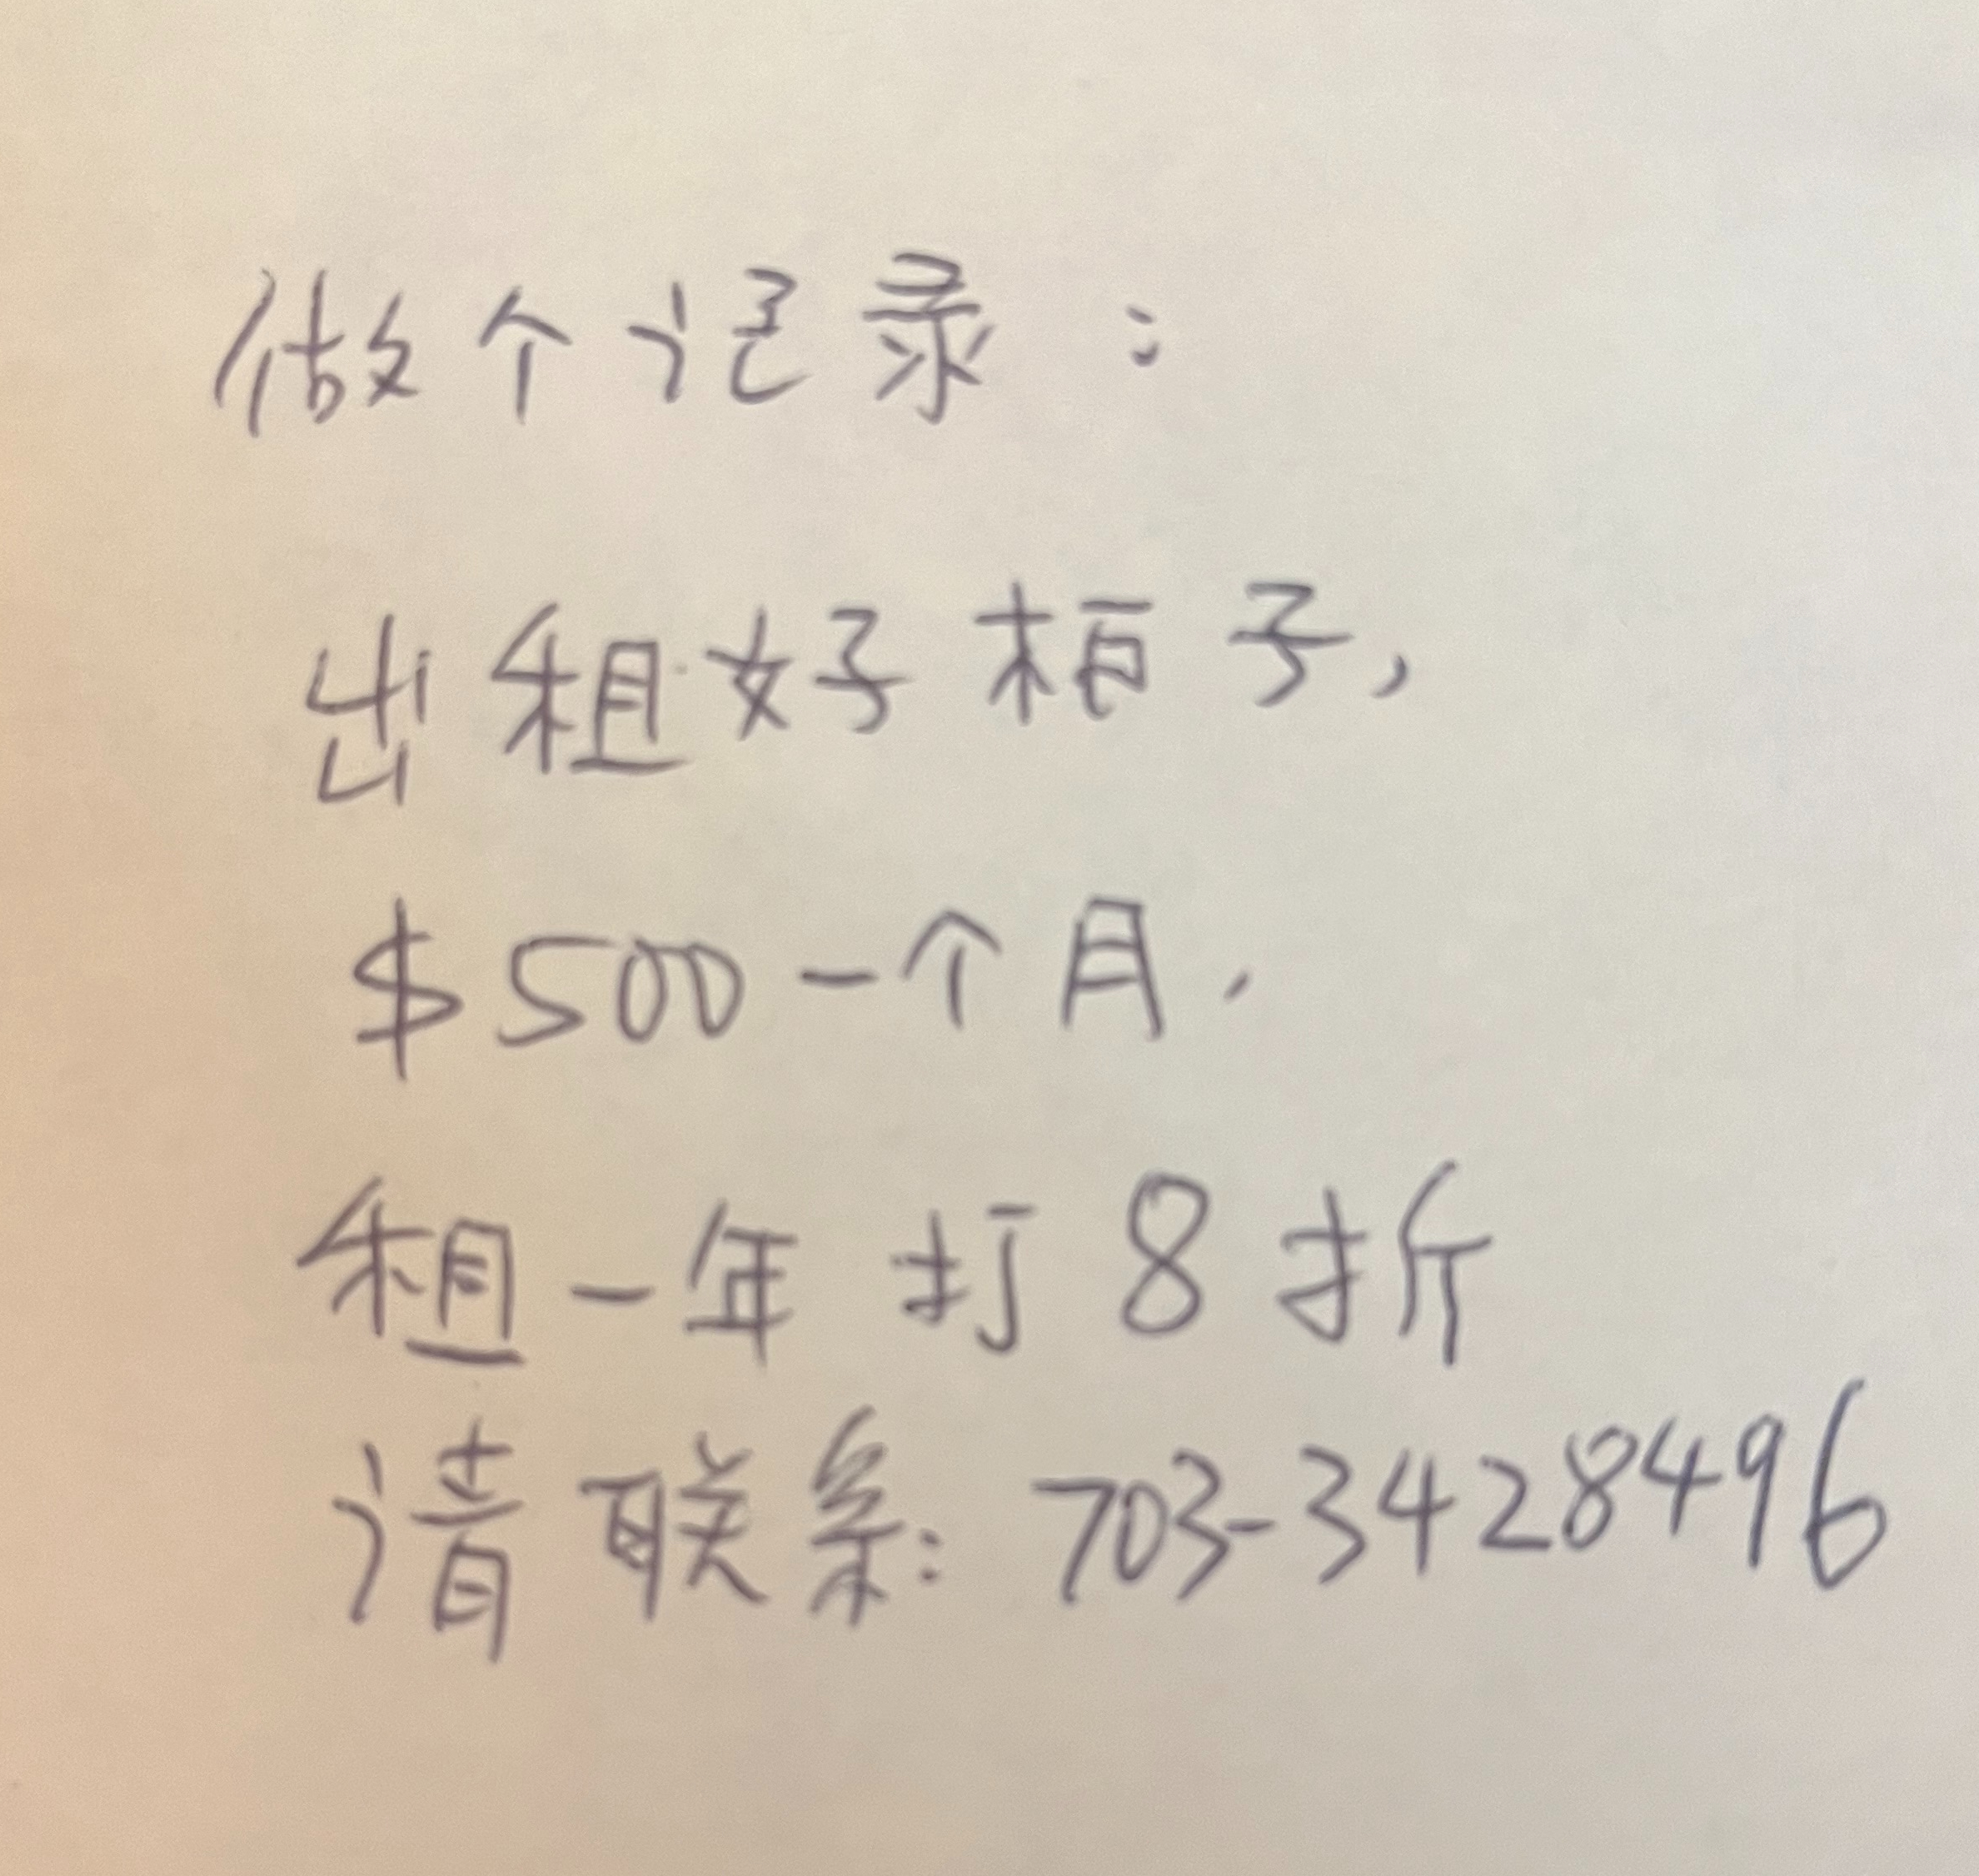 做个记录：
出租好柜子，
$500一个月，
租一年打8折
请联系：703-3428496